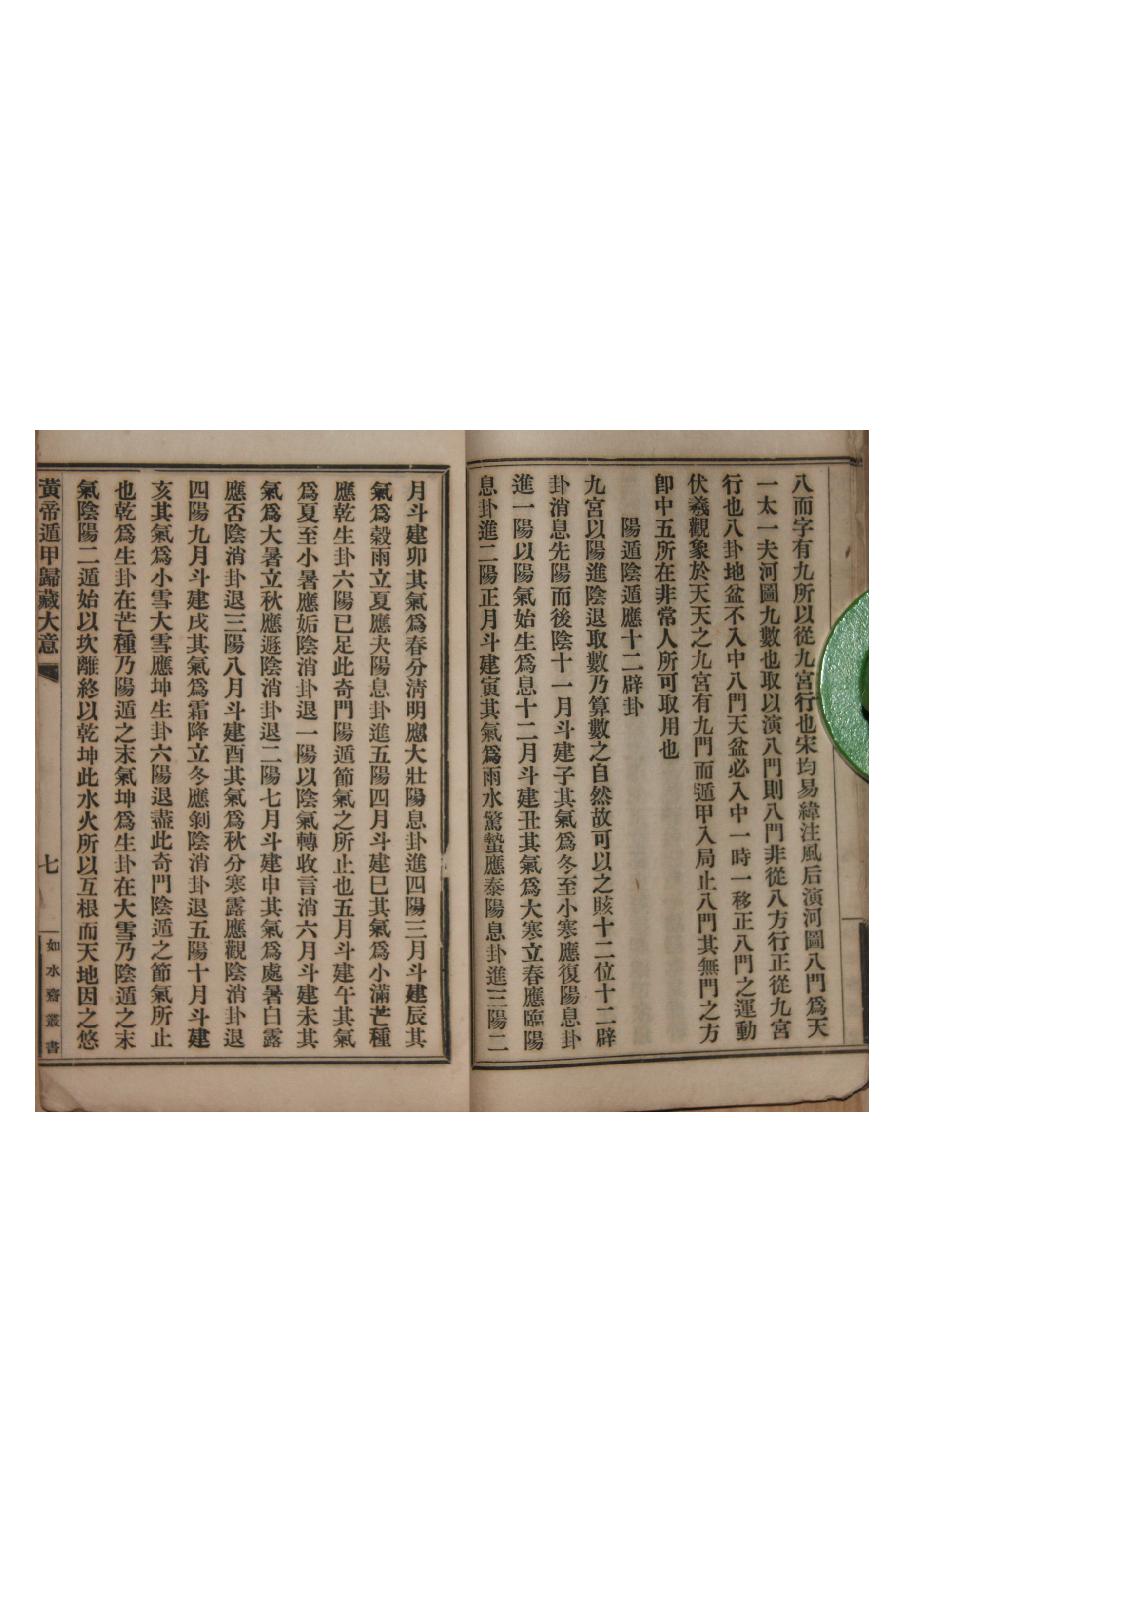 八而字有九所以從九宮行也宋均易緯注風后演河圖八門爲天
一太一夫河圖九數也取以演八門則八門非從八方行正從九宮
行也八卦地盆不入中八門天盆必入中一時一移正八門之運動
伏羲觀象於天天之九宮有九門而遁甲入局止八門其無門之方
卽中五所在非常人所可取用也
陽遁陰遁應十二辟卦
九宮以陽進陰退取數乃算數之自然故可以之賅十二位十二辟
卦消息先陽而後陰十一月斗建子其氣爲冬至小寒應復陽息卦
進一陽以陽氣始生爲息十二月斗建丑其氣爲大寒立春應臨陽
息卦進二陽正月斗建寅其氣爲雨水驚蟄應泰陽息卦進三陽二
月斗建卯其氣爲春分清明應大壯陽息卦進四陽三月斗建辰其
氣爲穀雨立夏應夬陽息卦進五陽四月斗建巳其氣爲小滿芒種
應乾生卦六陽已足此奇門陽遁節氣之所止也五月斗建午其氣
爲夏至小暑應姤陰消卦退一陽以陰氣轉收言消六月斗建未其
氣爲大暑立秋應遯陰消卦退二陽七月斗建申其氣爲處暑白露
應否陰消卦退三陽八月斗建酉其氣爲秋分寒露應觀陰消卦退
四陽九月斗建戌其氣爲霜降立冬應剝陰消卦退五陽十月斗建
亥其氣爲小雪大雪應坤生卦六陽退盡此奇門陰遁之節氣所止
也乾爲生卦在芒種乃陽遁之末氣坤爲生卦在大雪乃陰遁之末
氣陰陽二遁始以坎離終以乾坤此水火所以互根而天地因之悠
黃帝遁甲歸藏大意
七
如水齋叢書